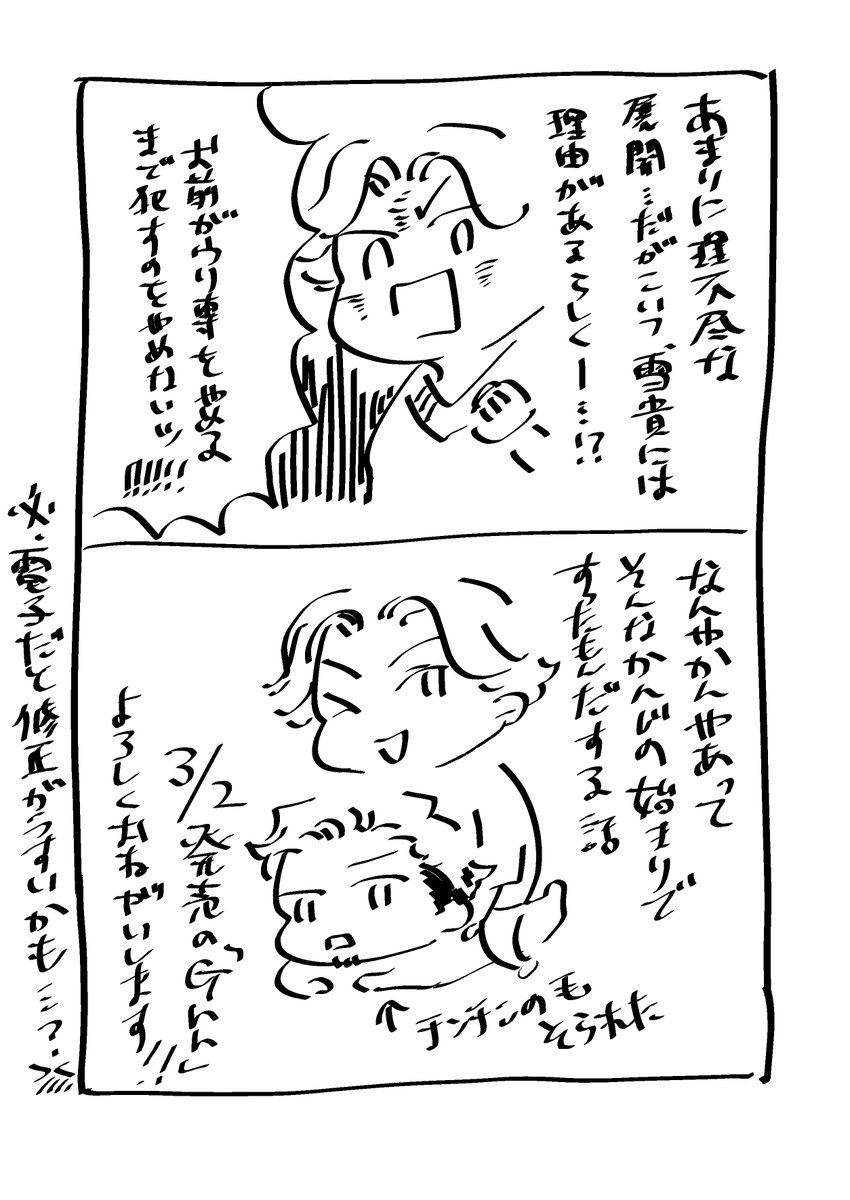 あまりに理不尽な
展開…だがこいつ、雪貴には
理由があるらしくー…!?
お前がウリ専をやめる
まで犯すのをやめないッ
!!!!!!
なんやかんやあって
そんなかんじの始まりで
すったもんだする話
3/2発売の「Gんん」
よろしくおねがいします!!
↑チンチンの毛
そられた
電子だと修正がうすいかも…?